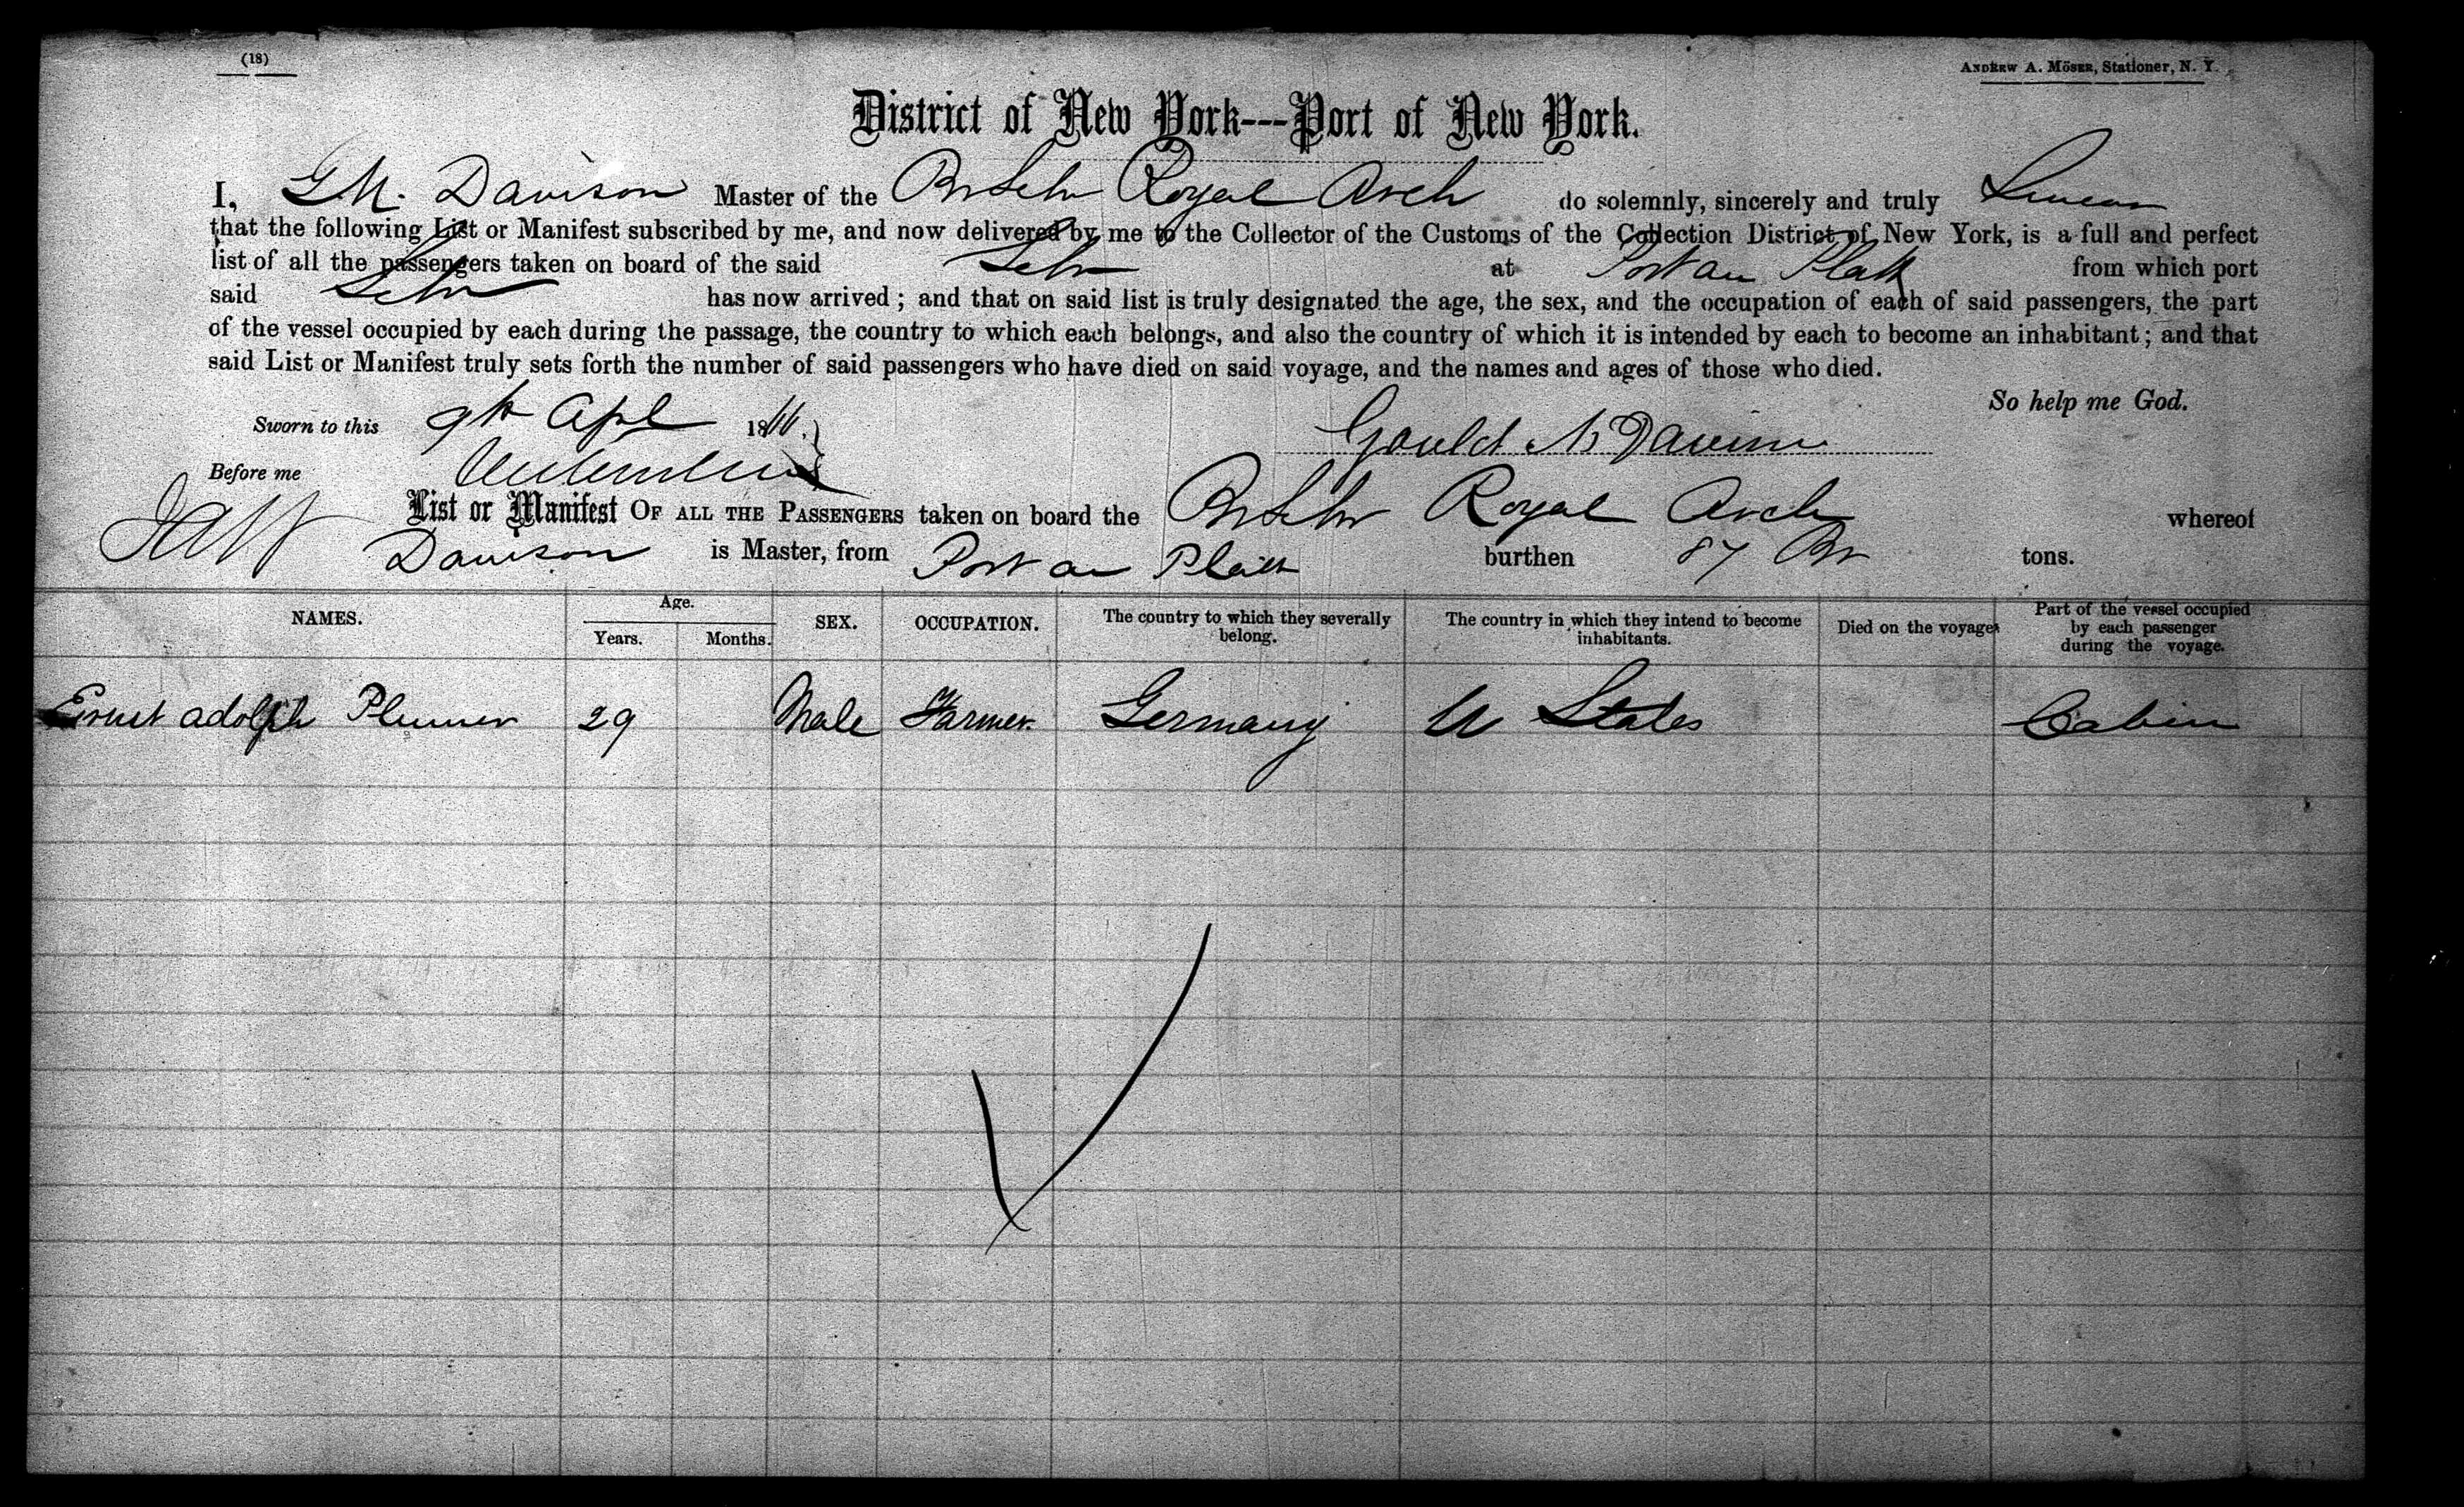 (18)
ANDREW A. MÖSER, Stationer, N. Y.
District of New York---Port of New York.
I, G M. Davison Master of the Br Schr Royal Arch do solemnly, sincerely and truly Swear
that the following List or Manifest subscribed by me, and now delivered by me to the Collector of the Customs of the Collection District of New York, is a full and perfect
list of all the passengers taken on board of the said Schr at Port au Platt from which port
said Schr has now arrived; and that on said list is truly designated the age, the sex, and the occupation of each of said passengers, the part
of the vessel occupied by each during the passage, the country to which each belongs, and also the country of which it is intended by each to become an inhabitant; and that
said List or Manifest truly sets forth the number of said passengers who have died on said voyage, and the names and ages of those who died.
So help me God.
Sworn to this 9th Apl 18
Gould M Davison
Before me
List or Manifest OF ALL THE PASSENGERS taken on board the Br Schr Royal Arch whereof
Davison is Master, from Port au Platt burthen 87 Br tons.
NAMES. Age. Years. Months. SEX. OCCUPATION. The country to which they severally belong. The country in which they intend to become inhabitants. Died on the voyage Part of the vessel occupied by each passenger during the voyage.
Ernst adolph 29 Male Farmer. Germany U States Cabin